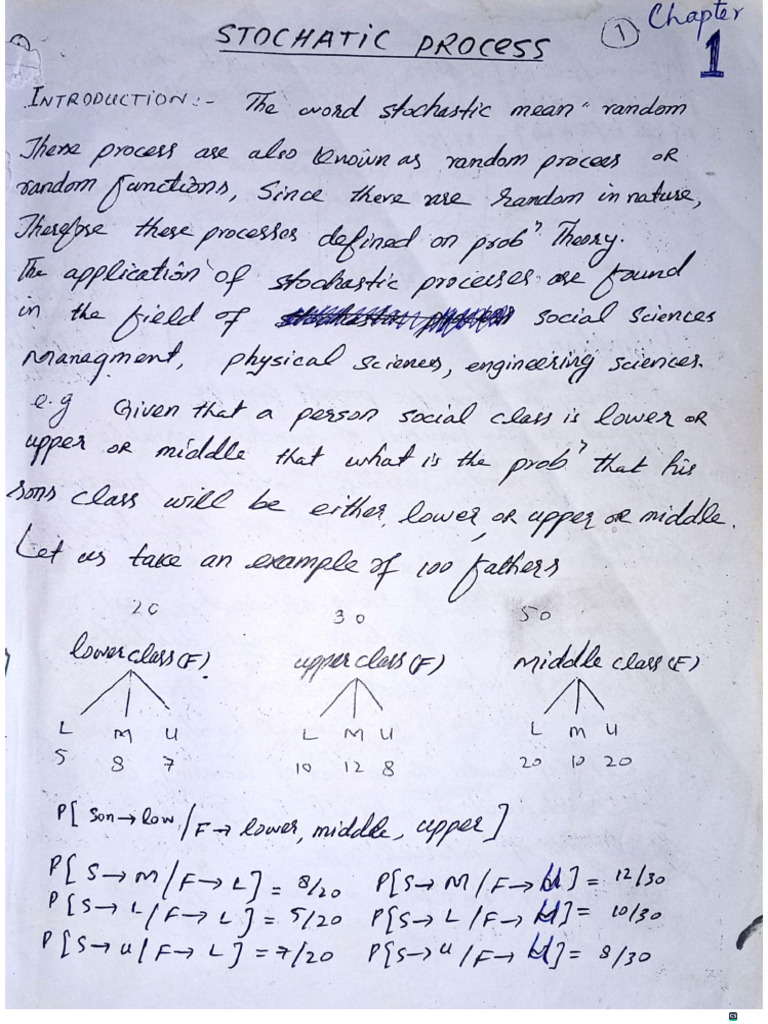 STOCHATIC PROCESS
① Chapter
1
INTRODUCTION:- The word stochastic mean "random
These process are also known as random procees OR
random functions, Since there are random in nature,
Therefore these processes defined on probⁿ Theory.
The application of stochastic processes are found
in the field of social sciences
Managment, physical sciences, engineering sciences.
e.g Given that a person social class is lower OR
upper OR middle that what is the probⁿ that his
sons class will be either lower, or upper or middle.
Let us take an example of 100 fathers
20 30 50
lower class(F) upper class(F) middle class(F)
L M U L M U L M U
5 8 7 10 12 8 20 10 20
P[ Son→low / F→ lower, middle, upper ]
P[S→M/F→L] = 8/20 P[S→M/F→U] = 12/30
P[S→L/F→L] = 5/20 P[S→L/F→U] = 10/30
P[S→U/F→L] = 7/20 P[S→U/F→U] = 8/30
CS